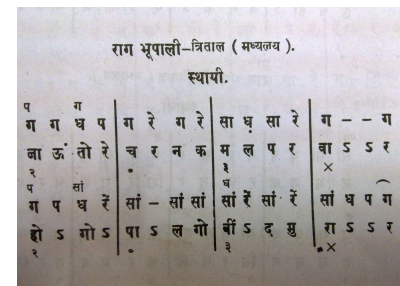 राग भूपाली–त्रिताल ( मध्यलय ).
स्थायी.
प ग
ग ग ध प | ग रे ग रे | सा ध़ सा रे | ग – – ग
जा ऊं तो रे | च र न क | म ल प र | वा ऽ ऽ र
२ ० ३ ×
प सां ध
ग प ध रें | सां – सां सां | सां रें सां रें | सां ध प ग
हो ऽ गो ऽ | पा ऽ ल गो | बीं ऽ द मु | रा ऽ ऽ र
२ ० ३ ×